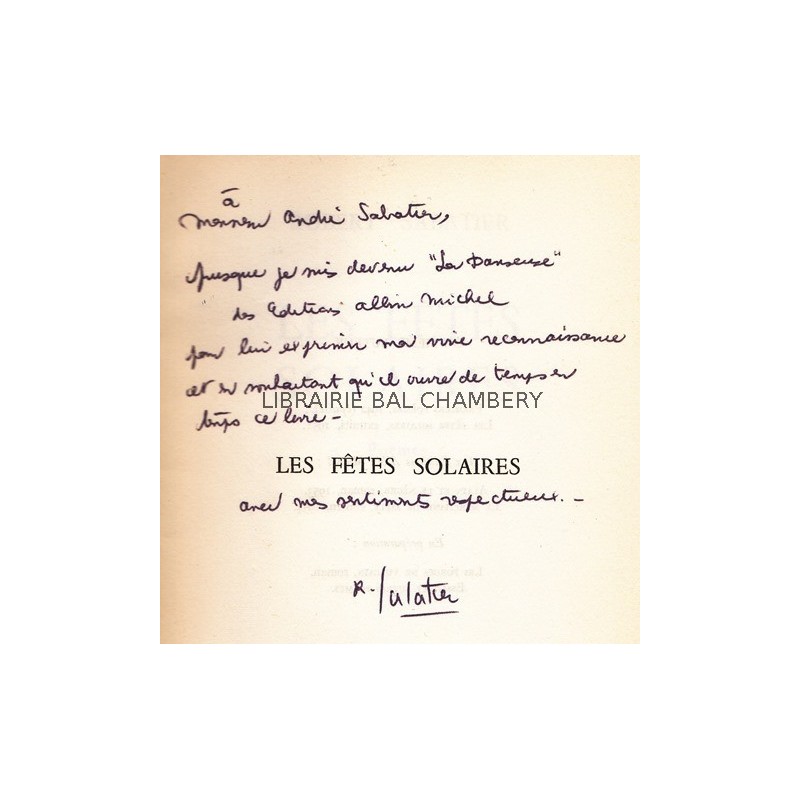 à
Monsieur André Sabatier,
puisque je suis devenu "La Danseuse"
des Editions Albin Michel
pour lui exprimer ma vive reconnaissance
et en souhaitant qu'il ouvre de temps en
LIBRAIRIE BAL CHAMBERY
temps ce livre –
LES FÊTES SOLAIRES
avec mes sentiments respectueux. –
R. Sabatier